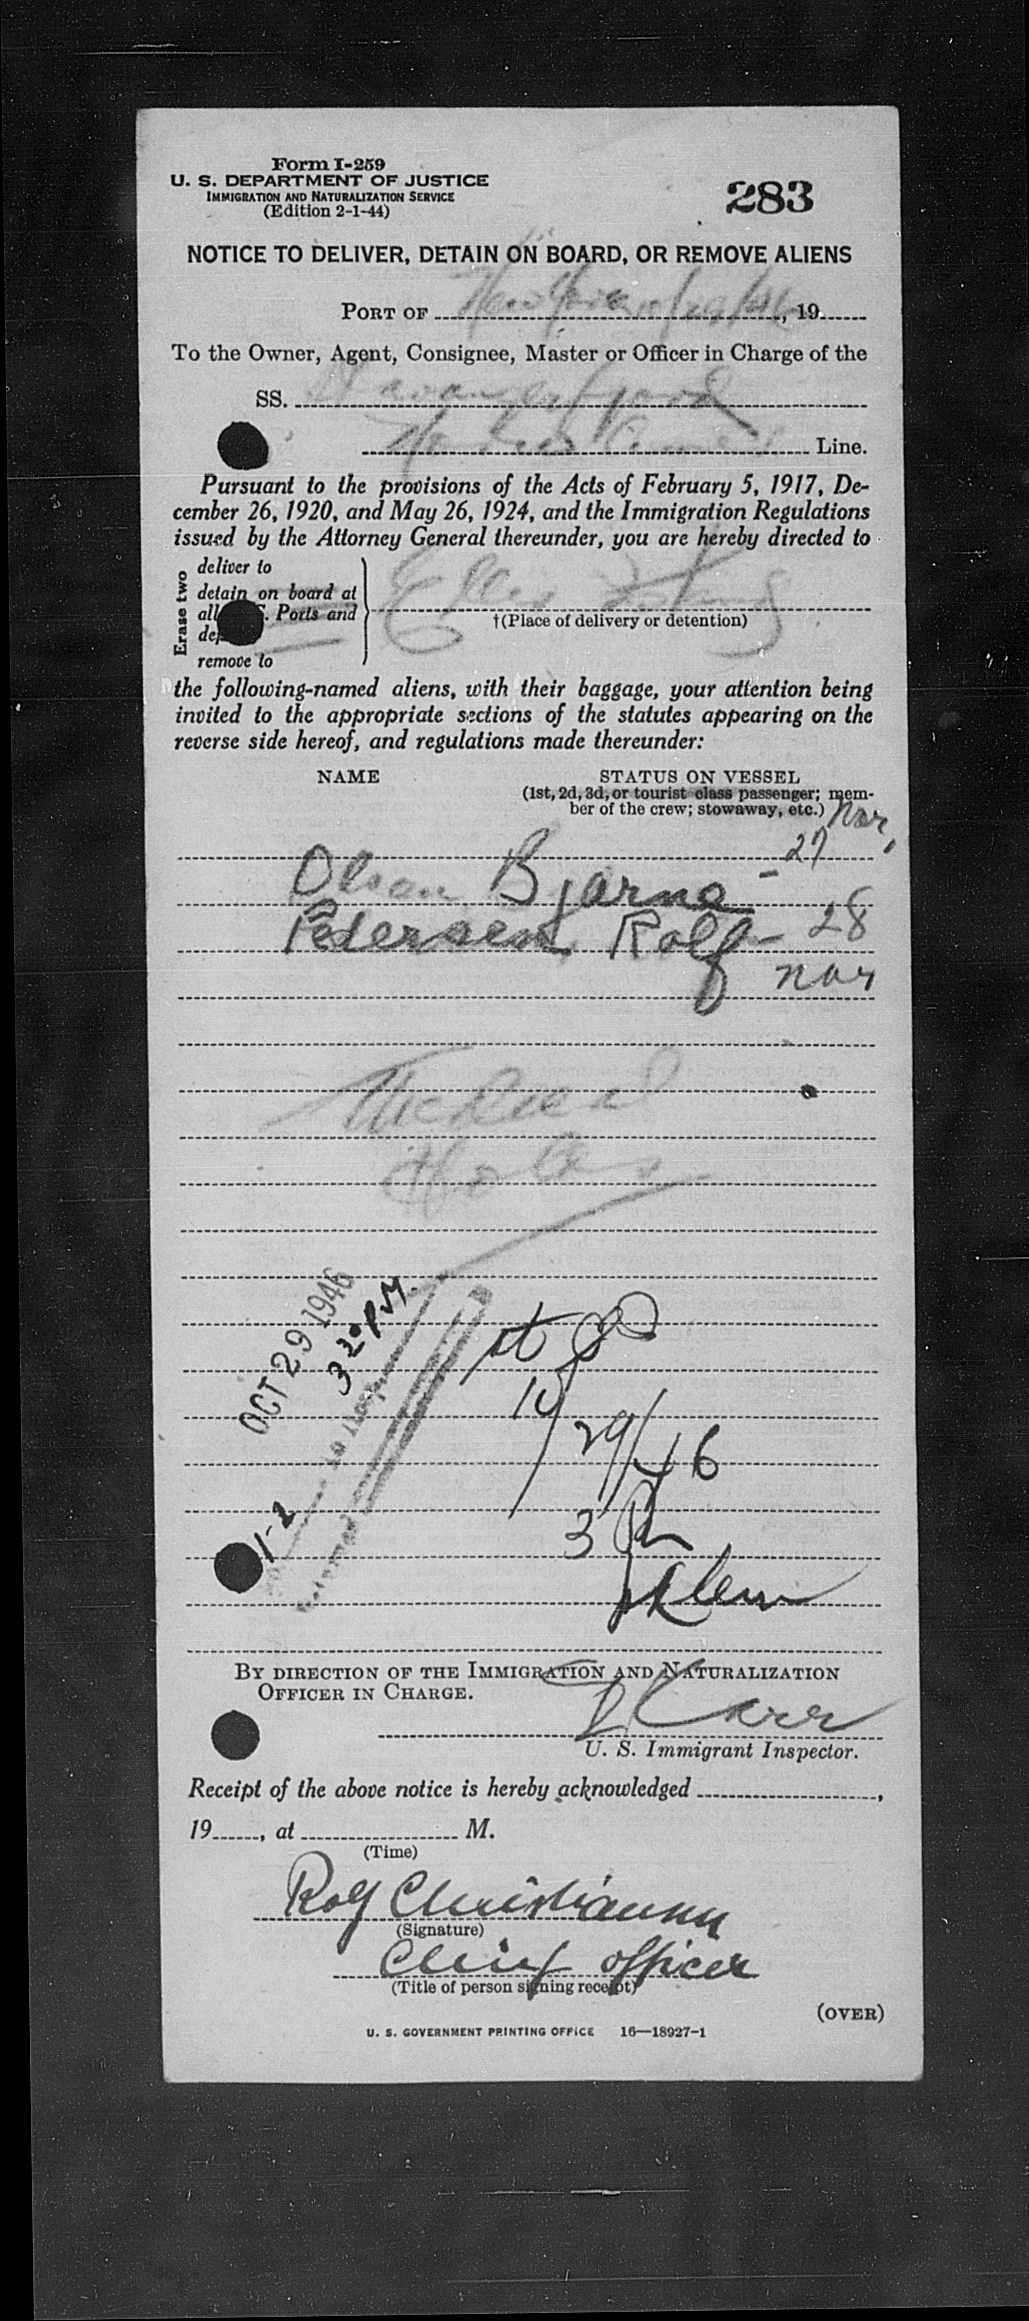 Form I-259
U. S. DEPARTMENT OF JUSTICE
IMMIGRATION AND NATURALIZATION SERVICE
(Edition 2-1-44)
283
NOTICE TO DELIVER, DETAIN ON BOARD, OR REMOVE ALIENS
PORT OF New York 10/29/46, 19
To the Owner, Agent, Consignee, Master or Officer in Charge of the
SS. Stavangerfjord
Line.
Pursuant to the provisions of the Acts of February 5, 1917, De-
cember 26, 1920, and May 26, 1924, and the Immigration Regulations
issued by the Attorney General thereunder, you are hereby directed to
Erase two
deliver to
detain on board at
all Ports and
remove to
Ellis Island
†(Place of delivery or detention)
the following-named aliens, with their baggage, your attention being
invited to the appropriate sections of the statutes appearing on the
reverse side hereof, and regulations made thereunder:
NAME STATUS ON VESSEL
(1st, 2d, 3d, or tourist class passenger; mem-
ber of the crew; stowaway, etc.)
Nor,
Olsen Bjarne - 27
Pedersen, Rolf - 28
nor
Medical
OCT 29 1946
3 20 PM
10/29/46
3 Pm
BY DIRECTION OF THE IMMIGRATION AND NATURALIZATION
OFFICER IN CHARGE.
Carr
U. S. Immigrant Inspector.
Receipt of the above notice is hereby acknowledged ,
19 , at M.
(Time)
Rolf Christiansen
(Signature)
Chief officer
(Title of person signing receipt)
(OVER)
U. S. GOVERNMENT PRINTING OFFICE 16—18927-1